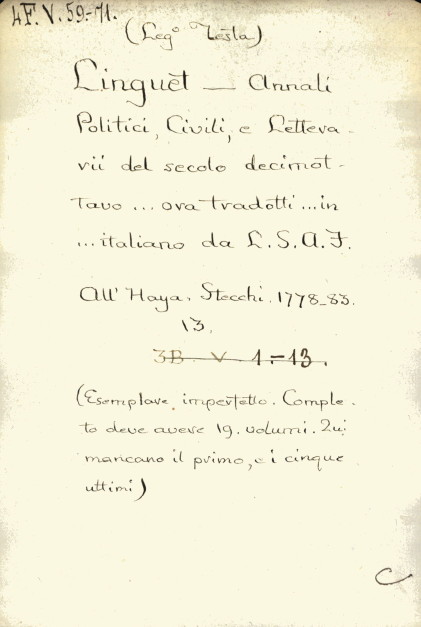 4F. V. 59-71.
(Leg.° Testa)
Linguet — Annali
Politici, Civili, e Lettera-
rii del secolo decimot-
tavo ... ora tradotti ... in
... italiano da L. S. A. F.
All' Haya. Stecchi. 1778-83.
13.
3B V 1-13.
(Esemplare imperfetto. Comple-
to deve avere 19. volumi. Qui
mancano il primo, e i cinque
ultimi)
C